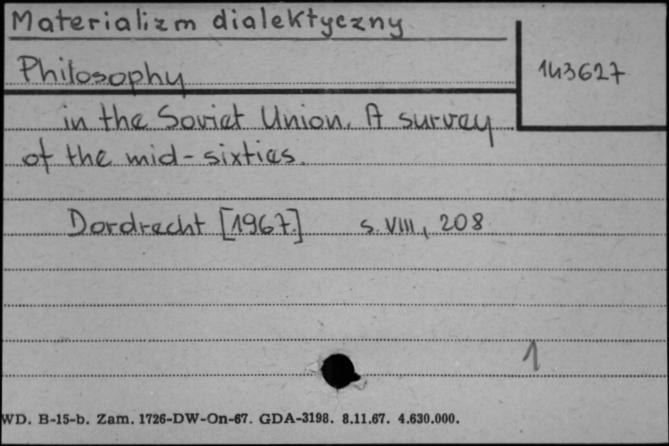 Materializm dialektyczny
Philosophy
143627
in the Soviet Union. A survey
of the mid-sixties.
Dordrecht [1967.] s. VIII, 208.
1
WD. B-15-b. Zam. 1726-DW-On-67. GDA-3198. 8.11.67. 4.630.000.